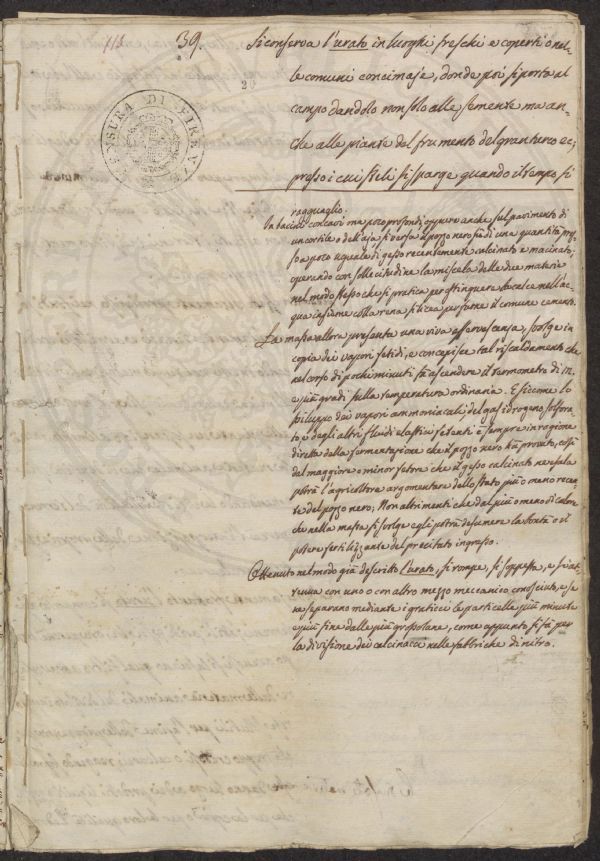 39.
20
CENSURA DI FIRENZE
Si conserva l'urato in luoghi freschi e coperti o nel
le comuni concimaje, donde poi si porta al
campo dandolo non solo alle semente ma an-
che alle piante del frumento del granturco ec;
presso i cui steli si sparge quando il tempo si
ragguaglio.
In bacini concavi ma poco profondi oppure anche sul pavimento di
un cortile o dell'aja si versa il pozzo nero su di una quantità pres
so a poco uguale di gesso recentemente calcinato e macinato,
operando con sollecitudine la miscela delle due materie
nel modo stesso che si pratica per estinguere la calce nell'ac
qua insieme colla rena silicea per farne il comune cemento.
La massa allora presenta una viva effervescenza, svolge in
copia dei vapori fetidi, e concepisce tal riscaldamento che
nel corso di pochi minuti fa ascendere il termometro di
e più gradi sulla temperatura ordinaria. E siccome lo
sviluppo dei vapori ammoniacali, del gas idrogeno solfora
to, e degli altri fluidi elastici fetenti è sempre in ragione
diretta della fermentazione che il pozzo nero ha provato, così
del maggiore o minor fetore che il gesso calcinato ne esala
potrà l'agricoltore argomentare dello stato più o meno recen
te del pozzo nero; Non altrimenti che dal più o meno di calore
che nella massa si svolge egli potrà desumere la bontà o il
potere fertilizzante del precitato ingrasso.
Ottenuto nel modo già descritto l'urato, si rompe, si soppesta, e si
con uno o con altro mezzo meccanico conosciuto, e se
ne separano mediante i graticci le particelle più minute
e più fine dalle più grossolane, come appunto si fa per
la divisione dei calcinacci nelle fabbriche di nitro.